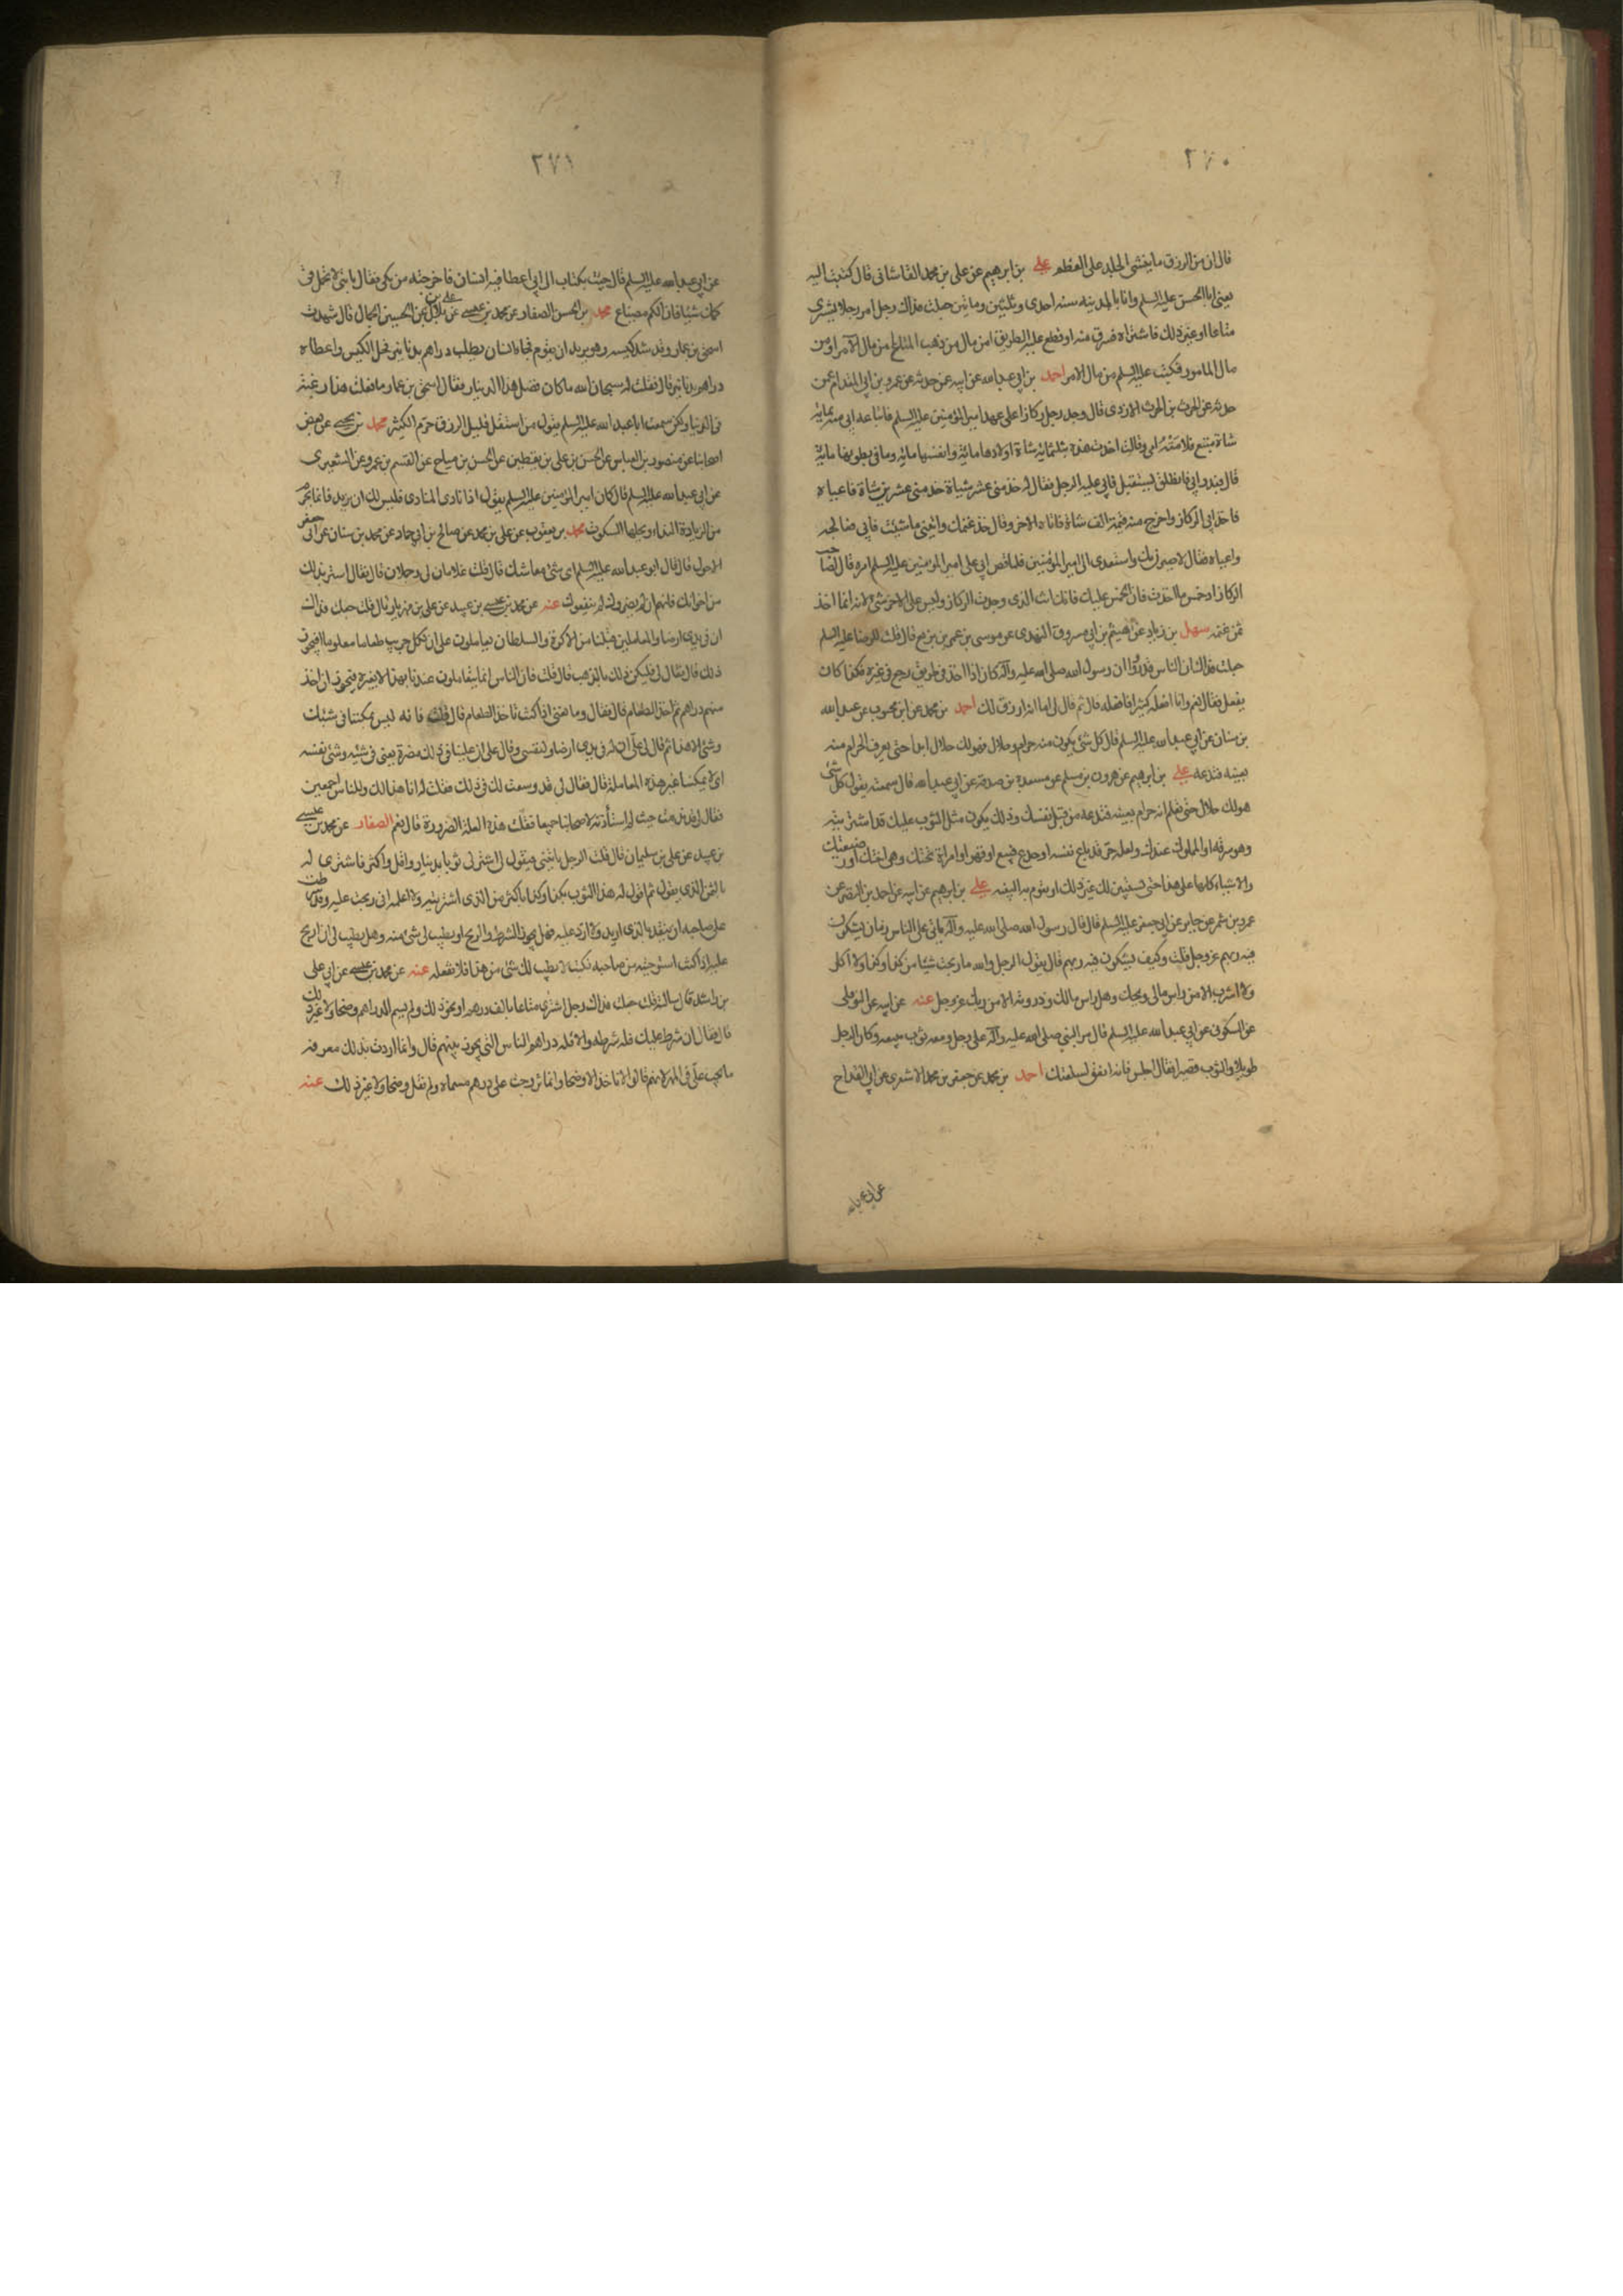 ٢٧٠
قال ان من الرزق ما ييبس الجلد على العظم علي بن ابرهيم عن علي بن محمد القاساني قال كتبت اليه
يعني ابا الحسن عليه السلم وانا بالمدينه سنه احدى وثلثين ومائتين جعلت فداك رجل امر رجلا يشترى
متاعا او غير ذلك فاشتراه فسرق منه او قطع عليه الطريق من مال من ذهب المتاع من مال الآمر او من
مال المامور فكتب عليه السلم من مال الامر احمد بن ابي عبدالله عن ابيه عن حدثه عن عمرو بن ابي المقدام عن
حدثه عن الحرث بن الحرث الازدى قال وجد رجل ركازا على عهد امير المؤمنين عليه السلم فابتاعه ابي منه بثلثمائة
شاة متبع فلامته امي وقالت اخذت هذه بثلثمائة شاة اولادها مائة وانفسها مائة وما في بطونها مائة
قال فندم ابي فانطلق ليستقيل فابى عليه الرجل فقال له خذ منى عشر شياة خذ منى عشرين شاة فاعياه
فاخذ ابي الركاز واخرج منه قيمة الف شاة فاتاه الآخر وقال خذ غنمك وائتني ما شئت فابى فعالجه
واعياه فقال لاضرن بك واستعدى الى امير المؤمنين فلما قص ابي على امير المومنين عليه السلم امره قال لصاحب
الركاز اد خمس ما اخذت فان الخمس عليك فانك انت الذى وجدت الركاز وليس على الاخر شئ لانه انما اخذ
ثمن غنمه سهل بن زياد عن هيثم بن ابي مسروق النهدى عن موسى بن عمر بن بزيع قال قلت للرضا عليه السلم
جعلت فداك ان الناس قد رووا ان رسول الله صلى الله عليه وآله كان اذا اخذ في طريق رجع في غيره فكذا كان
يفعل فقال نعم وانا افعله كثيرا فافعله قال ثم قال لي اما انه ارزق لك احمد بن محمد عن ابن محبوب عن عبدالله
بن سنان عن ابي عبدالله عليه السلم قال كل شئ يكون منه حرام وحلال فهو لك حلال ابدا حتى يعرف الحرام منه
بعينه فتدعه علي بن ابرهيم عن هرون بن مسلم عن مسعدة بن صدقة عن ابي عبدالله قال سمعته يقول كل شئ
هو لك حلال حتى تعلم انه حرام بعينه فتدعه من قبل نفسك وذلك يكون مثل الثوب عليك قد اشتريته
وهو سرقه او المملوك عندك ولعله حر قد باع نفسه او خدع فبيع او قهر او امراة تحتك وهي اختك او رضيعتك
والاشياء كلها على هذا حتى يستبين لك غير ذلك او يقوم به البينه علي بن ابرهيم عن ابيه عن احمد بن النضر عن
عمرو بن شمر عن جابر عن ابي جعفر عليه السلم قال قال رسول الله صلى الله عليه وآله ياتي على الناس زمان يشكون
فيه ربهم عز وجل قلت وكيف يشكون فيه ربهم قال يقول الرجل والله ما ربحت شيئا من كذا وكذا ولا آكل
ولا اشرب الا من راس مالي ويحك وهل راس مالك وذروته الا من ربك عز وجل عنه عن ابيه عن النوفلي
عن السكوني عن ابي عبدالله عليه السلم قال مر النبي صلى الله عليه وآله على رجل ومعه ثوب يبيعه وكان الرجل
طويلا والثوب قصيرا فقال اجلس فانه انفق لسلعتك احمد بن محمد عن جعفر بن محمد الاشعرى عن ابي القداح
عن ابي عبدالله
٢٧١
عن ابي عبدالله عليه السلم قال جئت بكتاب الى ابي اعطانيه انسان فاخرجته من كمي فقال يا بني لا تحمل في
كمك شيئا فان الكم مضياع محمد بن الحسن الصفار عن محمد بن عيسى عن علي بن بلال عن الحسين الجمال قال شهدت
اسحق بن عمار وقد شد كيسه وهو يريد ان يقوم فجاءه انسان يطلب دراهم بدنانير فحل الكيس واعطاه
دراهم بدنانير قال فقلت له سبحان الله ما كان فضل هذا الدينار فقال اسحق بن عمار ما فعلت هذا رغبة
في الدنيا ولكن سمعت ابا عبدالله عليه السلم يقول من استقل قليل الرزق حرم الكثير محمد بن يحيى عن بعض
اصحابنا عن منصور بن العباس عن الحسن بن علي بن يقطين عن الحسين بن مياح عن القسم بن عمرو عن الشعيرى
عن ابي عبدالله عليه السلم قال كان امير المؤمنين عليه السلم يقول اذا نادى المنادى فليس لك ان تزيد فانما يحرم
من الزيادة النداء ويحلها السكوت محمد بن يعقوب عن علي بن محمد عن صالح بن ابي حماد عن محمد بن سنان عن ابي جعفر
الاحول قال قال ابو عبدالله عليه السلم اى شئ معاشك قال قلت غلامان لي وجملان قال فقال استر بذلك
من اخوانك فانهم ان لم يضروك لم ينفعوك عنه عن محمد بن عيسى بن عبيد عن علي بن مهزيار قال قلت جعلت فداك
ان في يدى ارضا والمعاملين قبلنا من الاكرة والسلطان يعاملون على ان لكل جريب طعاما معلوما افيجوز
ذلك قال فقال لي فليكن ذلك بالذهب قال قلت فان الناس انما يتعاملون عندنا بهذا لا بغيره فيجوز ان اخذ
منهم دراهم ثم اخذ الطعام قال فقال وما تعني اذا كنت تاخذ الطعام قال قلت فانه ليس يمكننا في شيئك
وشئ الا هذا ثم قال لي على ان له في يدى ارضا ولنفسي وقال على ان علينا في ذلك مضرة يعنى في شيئه وشئ نفسه
اى لا يمكننا غير هذه المعاملة قال فقال لي قد وسعت لك في ذلك فقلت له انا هذا لك وللناس اجمعين
فقال لي قد ندمت حيث لم استأذنه لاصحابنا جميعا فقلت هذه العلة الضرورة قال نعم الصفار عن محمد بن عيسى
بن عبيد عن علي بن سليمان قال قلت الرجل ياتيني فيقول لي اشتر لي ثوبا بدينار واقل واكثر فاشترى له
بالثمن الذى يقول ثم اقول له هذا الثوب بكذا وكذا باكثر من الذى اشتريته ولا اعلمه اني ربحت عليه وقد شرطت
على صاحبه ان ينقد بالذى اريد والا ارد عليه فهل يجوز الشرط والربح او يطيب لي شئ منه وهل يطيب لي ان اربح
عليه اذا كنت استوجبته من صاحبه فكتب لا يطيب لك شئ من هذا فلا تفعله عنه عن محمد بن عيسى عن ابي علي
بن راشد قال سالته قلت جعلت فداك رجل اشترى متاعا بالف درهم او نحو ذلك ولم يسم الدراهم وضحا ولا غير ذلك
قال فقال ان شرط عليك فله شرطه والا فله دراهم الناس التي يجوز بينهم قال وانما اردت بذلك معرفة
ما يجب علي في المهر لانهم قالوا لا ناخذ الا وضحا وانما تزوجت على درهم مسماة ولم نقل وضحا ولا غير ذلك عنه